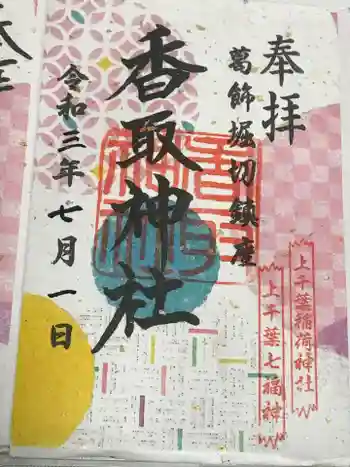 奉拝
葛飾堀切鎮座
香取神社
令和三年七月一日
上千葉稲荷神社
上千葉七福神